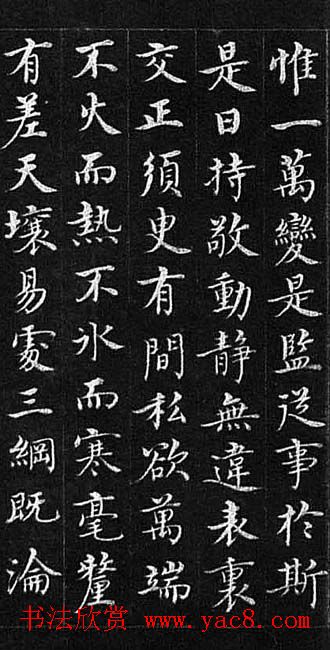 惟一萬變是監從事於斯
是曰持敬動靜無違表裏
交正須臾有間私欲萬端
不火而熱不氷而寒毫釐
有差天壤易處三綱既淪
书法欣赏 www.yac8.com